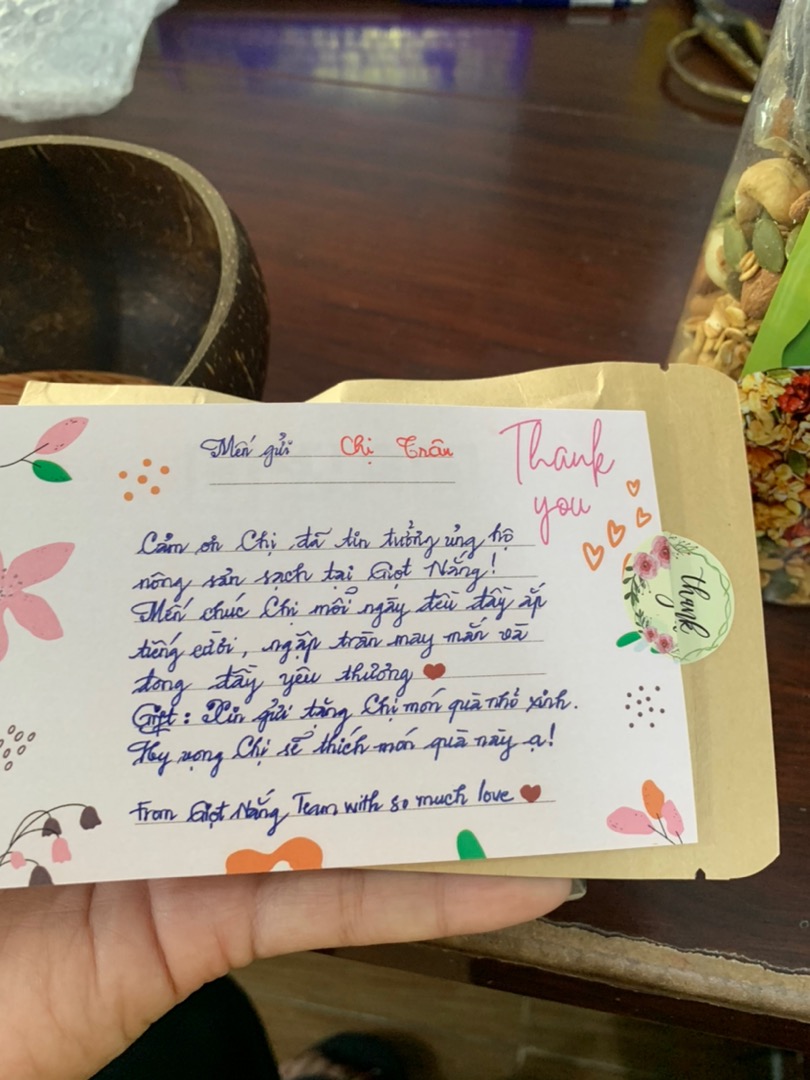 Mến gửi Chị Trâu
Thank
you
Cảm ơn Chị đã tin tưởng ủng hộ
nông sản sạch tại Giọt Nắng!
Mến chúc Chị mỗi ngày đều đầy ắp
tiếng cười, ngập tràn may mắn và
đong đầy yêu thương
Gift: Xin gửi tặng Chị món quà nhỏ xinh.
Hy vọng Chị sẽ thích món quà này ạ!
From Giọt Nắng Team with so much love
thank